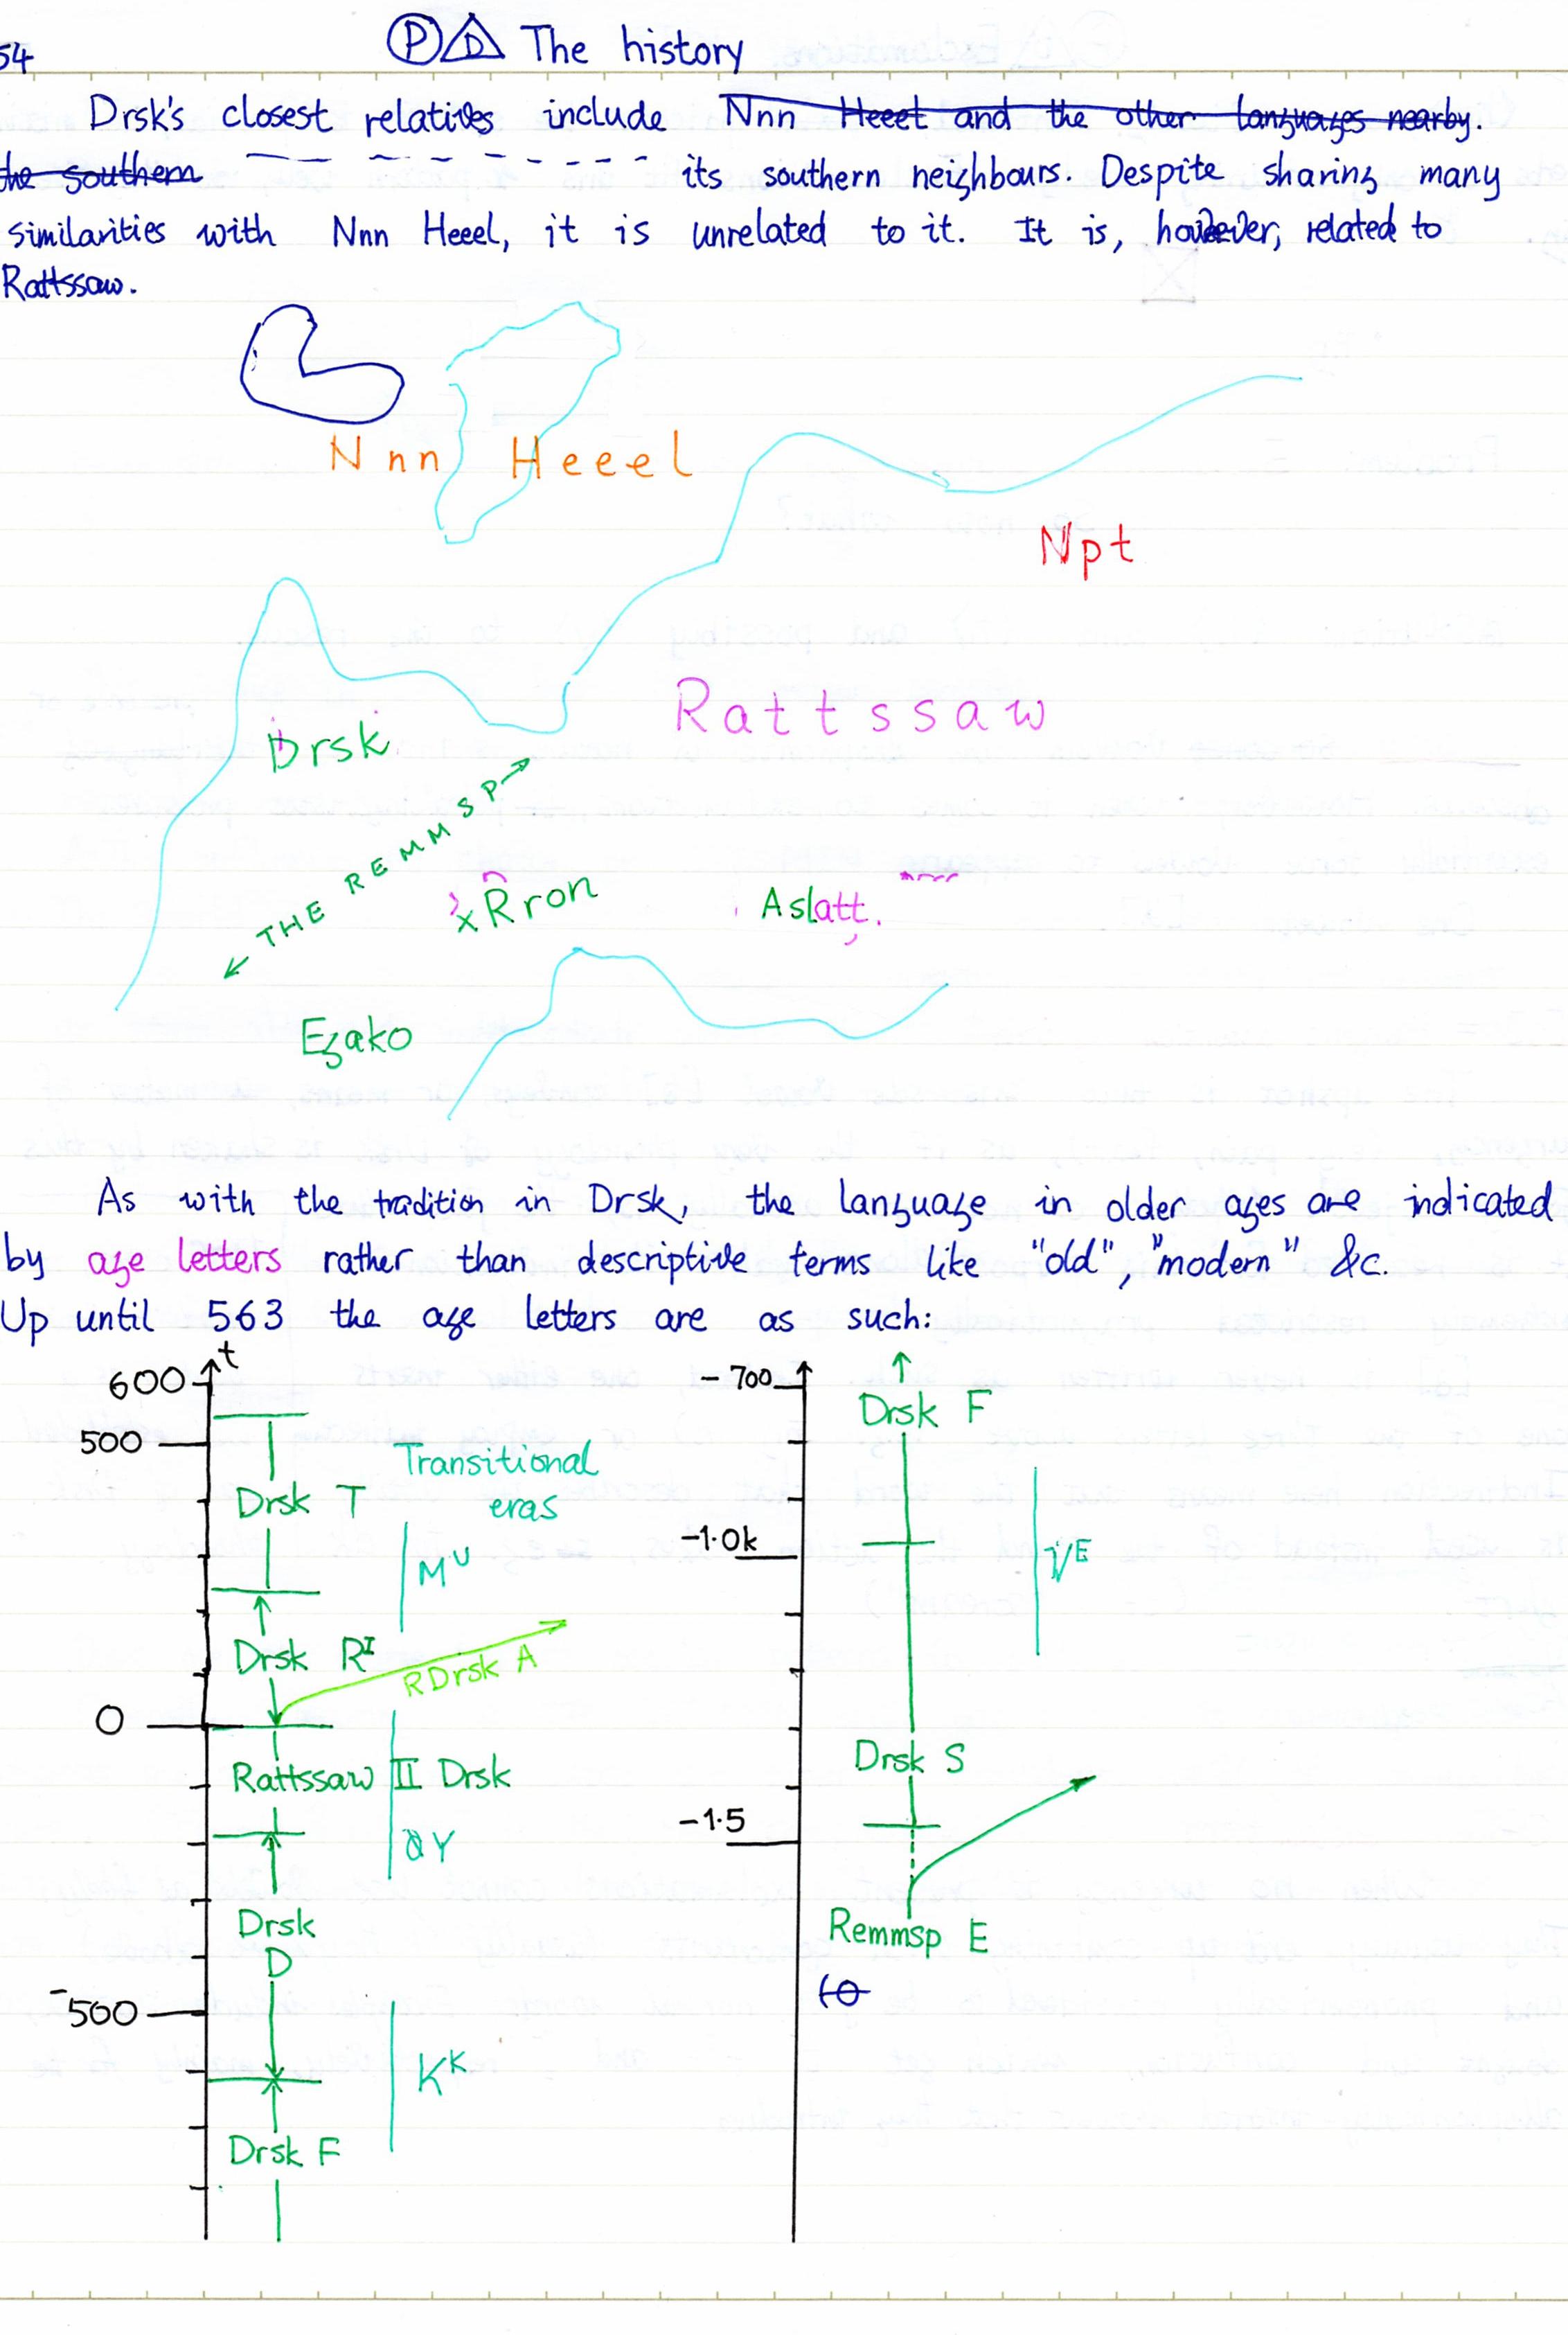 54
Ⓟ D The history
Drsk's closest relatives include Nnn Heeet and the other languages nearby.
the southern its southern neighbours. Despite sharing many
similarities with Nnn Heeel, it is unrelated to it. It is, however, related to
Rattssaw.
Nnn Heeel
Npt
Rattssaw
Drsk
THE REMMSP
xRron
Aslatt.
Ezako
As with the tradition in Drsk, the language in older ages are indicated
by age letters rather than descriptive terms like "old", "modern" &c.
Up until 563 the age letters are as such:
t
600
500
Drsk T
Transitional
eras
Mᵁ
Drsk Rᴵ
RDrsk A
0
Rattssaw II Drsk
Y
Drsk
D
-500
Kᴷ
Drsk F
-700
Drsk F
-1.0k
Drsk S
-1.5
Remmsp E